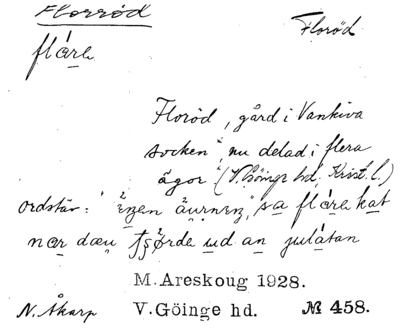 Florröd
Floröd
fláre
Floröd, gård i Vankiva
socken, nu delad i flera
ägor (V. Göinge hd, Krist. l.)
ordstäv: "ingen äurnen," sa flárekat
nar dæn fjørde ud an julátan
M. Areskoug 1928.
N. Åkarp V. Göinge hd. № 458.